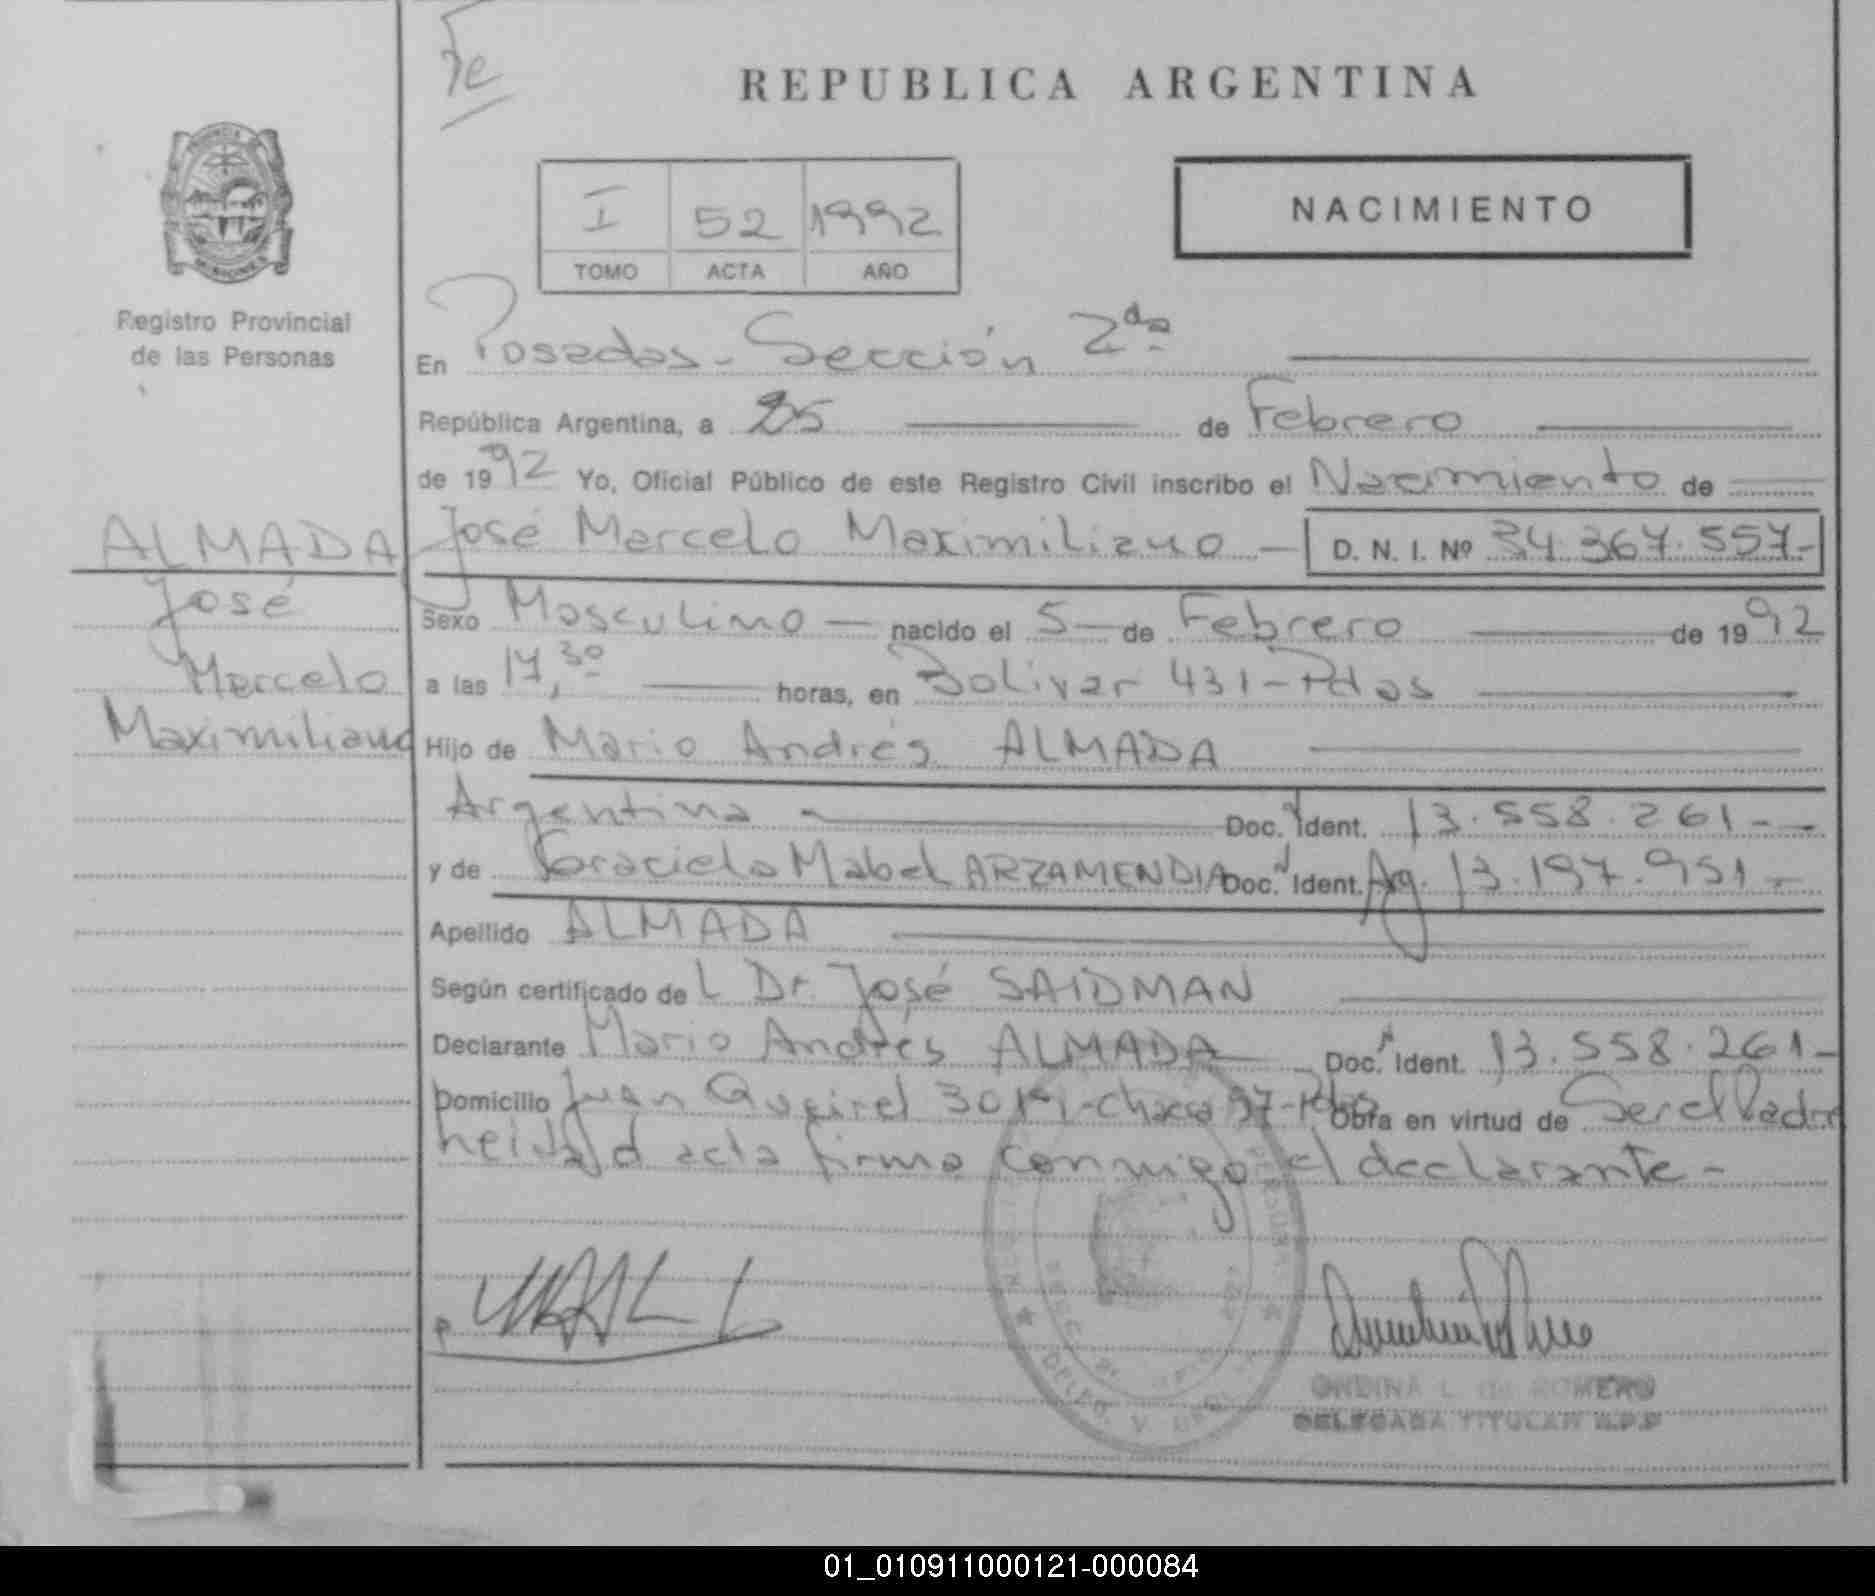 REPUBLICA ARGENTINA
I 52 1992
TOMO ACTA AÑO
NACIMIENTO
Registro Provincial
de las Personas
ALMADA
José
Marcelo
Maximiliano
En Posadas - Sección 2da
República Argentina, a 25 de Febrero
de 1992 Yo, Oficial Público de este Registro Civil inscribo el Nacimiento de
José Marcelo Maximiliano D. N. I. Nº 34.367.557-
Sexo Masculino nacido el 5 de Febrero de 1992
a las 17,30 horas, en Bolivar 431-Pdas
Hijo de Mario Andrés ALMADA
Argentina Doc. Ident. 13.558.261--
y de Graciela Mabel ARZAMENDIA Doc. Ident. Arg. 13.197.951-
Apellido ALMADA
Según certificado de L Dr. José SAIDMAN
Declarante Mario Andrés ALMADA Doc. Ident. 13.558.261-
Domicilio Juan Queirel Obra en virtud de Ser el Padre
acta firma conmigo el declarante-
ONDINA L. DE ROMERO
DELEGADA TITULAR R.P.P
01_010911000121-000084